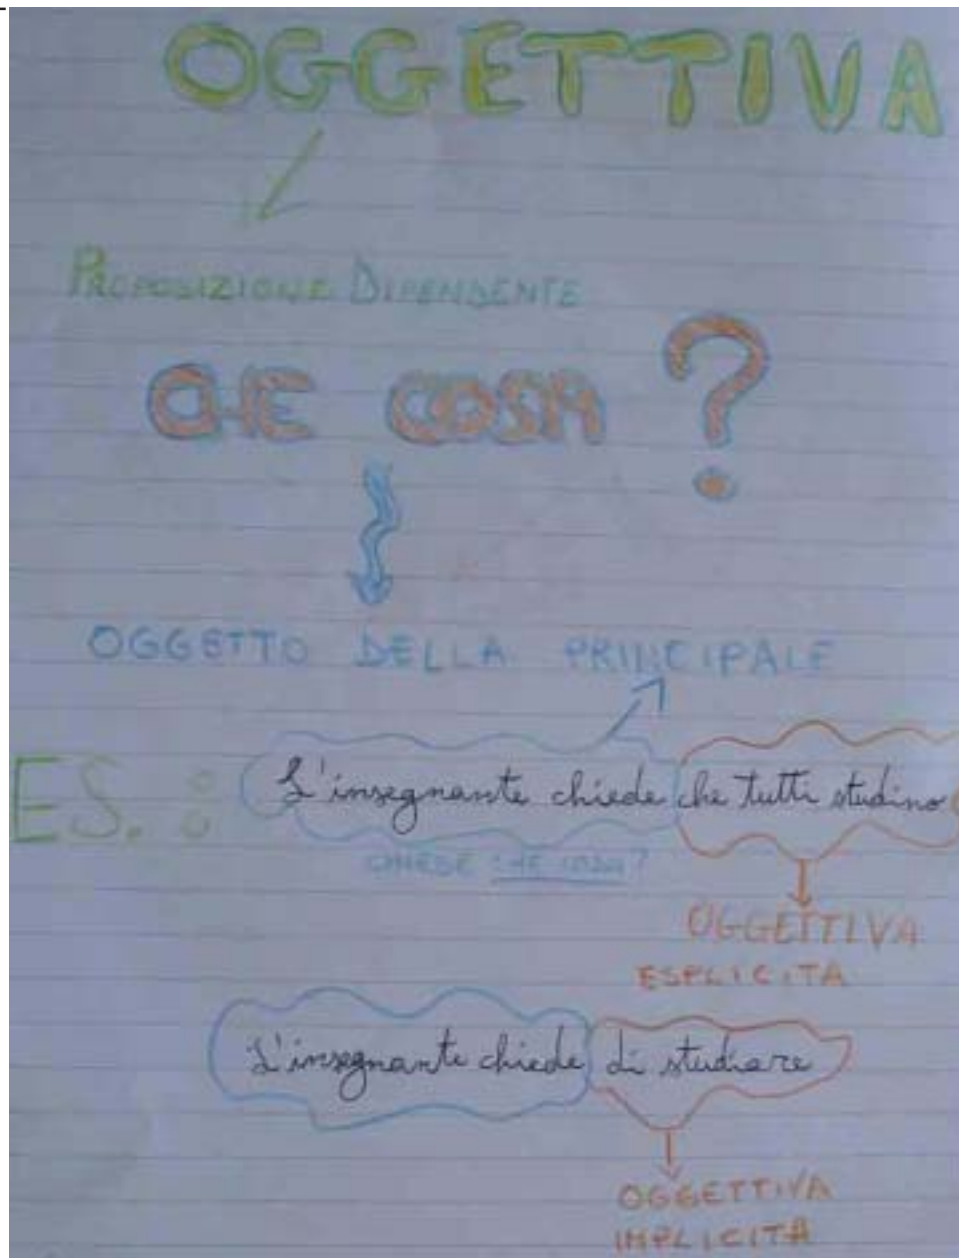 OGGETTIVA
PROPOSIZIONE DIPENDENTE
CHE COSA ?
OGGETTO DELLA PRINCIPALE
ES. : L'insegnante chiede che tutti studino
CHIEDE CHE COSA?
OGGETTIVA
ESPLICITA
L'insegnante chiede di studiare
OGGETTIVA
IMPLICITA